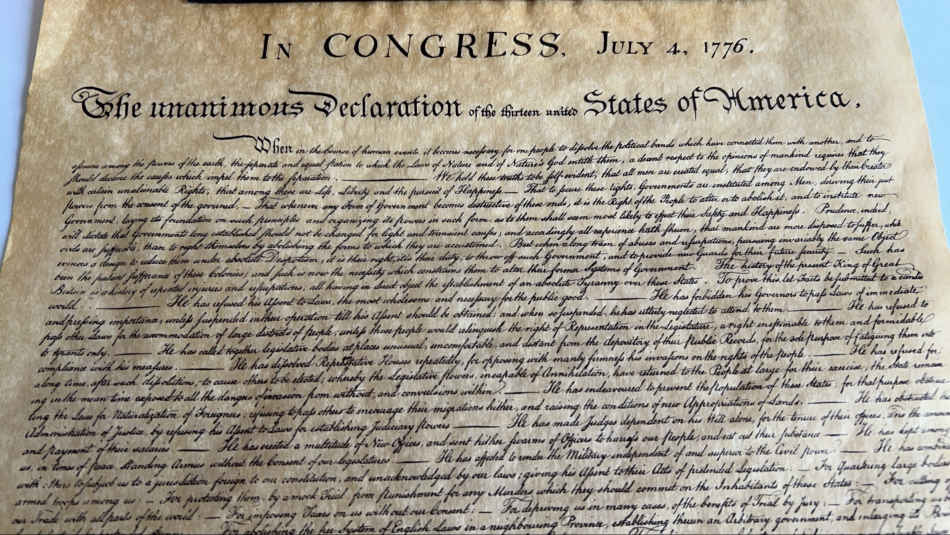 IN CONGRESS, JULY 4, 1776.
The unanimous Declaration of the thirteen united States of America.
When in the Course of human events it becomes necessary for one people to dissolve the political bands which have connected them with another, and to
among the powers of the earth, the separate and equal station to which the Laws of Nature and of Nature's God entitle them, a decent respect to the opinions of mankind requires that they
should declare the causes which impel them to the separation. We hold these truths to be self-evident, that all men are created equal, that they are endowed by their Creator
with certain unalienable Rights, that among these are Life, Liberty and the pursuit of Happiness — That to secure these rights, Governments are instituted among Men, deriving their just
powers from the consent of the governed, — That whenever any Form of Government becomes destructive of these ends, it is the Right of the People to alter or to abolish it, and to institute new
Government, laying its foundation on such principles and organizing its powers in such form, as to them shall seem most likely to effect their Safety and Happiness. Prudence, indeed,
will dictate that Governments long established should not be changed for light and transient causes; and accordingly all experience hath shewn, that mankind are more disposed to suffer, while
evils are sufferable, than to right themselves by abolishing the forms to which they are accustomed. But when a long train of abuses and usurpations, pursuing invariably the same Object
evinces a design to reduce them under absolute Despotism, it is their right, it is their duty, to throw off such Government, and to provide new Guards for their future security. — Such has
been the patient sufferance of these Colonies; and such is now the necessity which constrains them to alter their former Systems of Government. The history of the present King of Great
Britain is a history of repeated injuries and usurpations, all having in direct object the establishment of an absolute Tyranny over these States. To prove this, let Facts be submitted to a candid
world. He has refused his Assent to Laws, the most wholesome and necessary for the public good. He has forbidden his Governors to pass Laws of immediate
and pressing importance, unless suspended in their operation till his Assent should be obtained; and when so suspended, he has utterly neglected to attend to them. He has refused to
pass other Laws for the accommodation of large districts of people, unless those people would relinquish the right of Representation in the Legislature, a right inestimable to them and formidable
to tyrants only. He has called together legislative bodies at places unusual, uncomfortable, and distant from the depository of their Public Records, for the sole purpose of fatiguing them into
compliance with his measures. He has dissolved Representative Houses repeatedly, for opposing with manly firmness his invasions on the rights of the people. He has refused for
a long time, after such dissolutions, to cause others to be elected; whereby the Legislative powers, incapable of Annihilation, have returned to the People at large for their exercise; the State remain
ing in the mean time exposed to all the dangers of invasion from without, and convulsions within. He has endeavoured to prevent the population of these States; for that purpose obstruct
ing the Laws for Naturalization of Foreigners; refusing to pass others to encourage their migrations hither, and raising the conditions of new Appropriations of Lands. He has obstructed
Administration of Justice, by refusing his Assent to Laws for establishing Judiciary powers. He has made Judges dependent on his Will alone, for the tenure of their offices, and the amount
and payment of their salaries. He has erected a multitude of New Offices, and sent hither swarms of Officers to harass our People, and eat out their substance. He has kept among
us, in times of peace, Standing Armies without the Consent of our legislatures. He has affected to render the Military independent of and superior to the Civil power. He has
with others to subject us to a jurisdiction foreign to our constitution, and unacknowledged by our laws; giving his Assent to their Acts of pretended Legislation: — For Quartering large bodies
armed troops among us: — For protecting them, by a mock Trial, from punishment for any Murders which they should commit on the Inhabitants of these States: — For cutting
our Trade with all parts of the world: — For imposing Taxes on us without our Consent: — For depriving us in many cases, of the benefits of Trial by Jury: — For transporting us
For abolishing the free System of English Laws in a neighbouring Province, establishing therein an Arbitrary government, and enlarging its